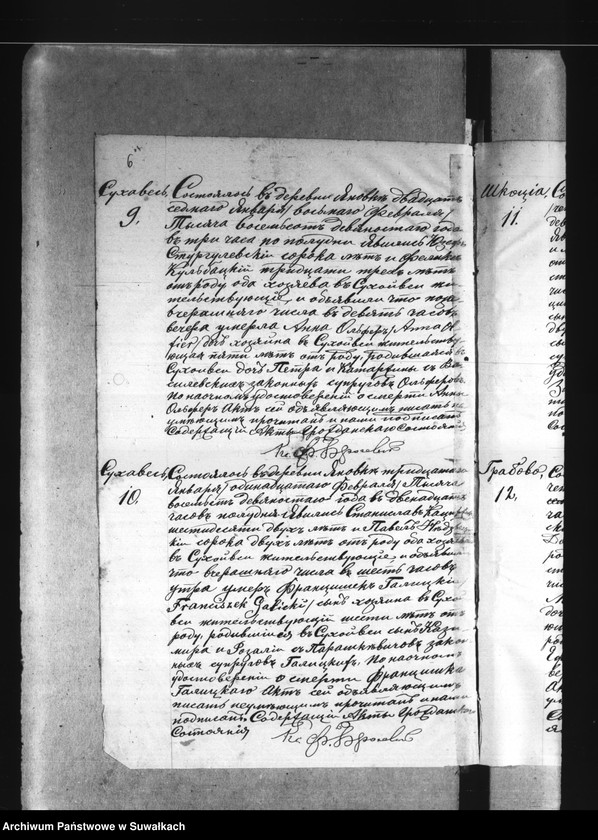 6
Сухавесь,
9.
Состоялось въ деревни Яновкѣ двадцать
седмаго Января / восьмаго Февраля /
Тысяча восемьсотъ девяностаго года
въ три часа по полудни Явились
сорока лѣтъ и
Кульбацкій тридцати трехъ лѣтъ
отъ роду оба хозяева въ Сухойвси жи-
тельствующіе, и объявили что поза-
вчерашняго числа въ девять часовъ
вечера умерла Анна Ольферъ / Anna Ol-
fier / дочь хозяина въ Сухойвси жительству-
ющая пяти лѣтъ отъ роду, родившаяся въ
Сухойвси дочь Петра и Катаржины съ Ва-
силевскихъ законныхъ супруговъ Ольферовъ.
По наочномъ удостовереніи о смерти Анны
Ольферъ Актъ сей объявляющимъ писать не
умѣющимъ прочитанъ и нами подписанъ
Содержащій Акты Гражданскаго Состоянія
Сухавесь,
10.
Состоялось въ деревни Яновкѣ тридцатаго
Января / одинадцатаго Февраля / Тысяча
восемьсотъ девяностаго года въ двенадцать
часовъ полудня явились Станиславъ
шестидесяти двухъ лѣтъ и Павелъ
сорока двухъ лѣтъ отъ роду оба хозяева
въ Сухойвси жительствующіе, и объявили
что вчерашняго числа въ шесть часовъ
утра умеръ Францишекъ Галицкій
Franciszek Galicki / сынъ хозяина въ Сухой-
вси жительствующій шести лѣтъ отъ
роду, родившійся въ Сухойвси сынъ Кази-
мира и Розаліи съ Парашкѣвичовъ закон-
ныхъ супруговъ Галицкихъ. По наочномъ
удостовереніи о смерти Францишка
Галицкаго Актъ сей объявляющимъ
писать неумѣющимъ прочитанъ и нами
подписанъ. Содержащій Акты Гражданскаго
Состоянія
Шкоція,
11.
Грабово,
12,
Archiwum Państwowe w Suwałkach